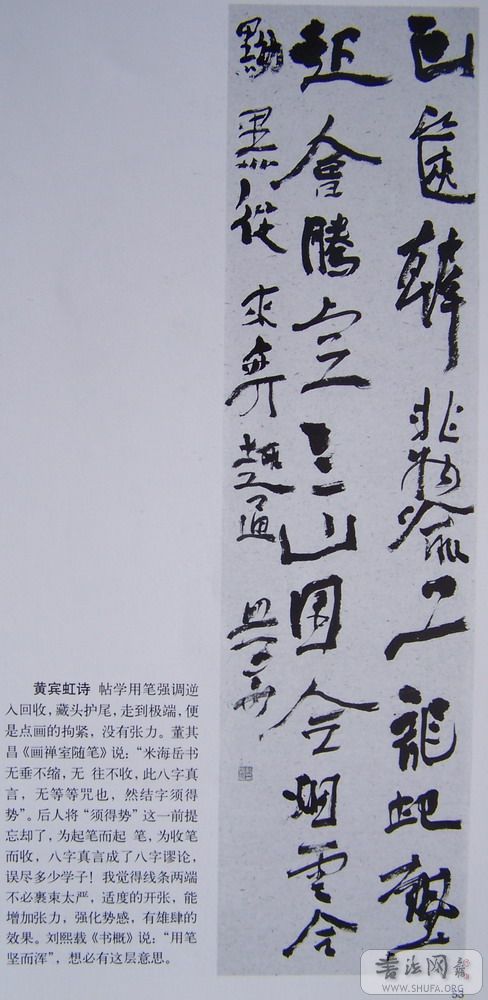 韓非工龍蛇蟄
起會騰空三山圍合烟雲合
黝黑從來通
黄宾虹诗 帖学用笔强调逆
入回收，藏头护尾，走到极端，便
是点画的拘紧，没有张力。董其
昌《画禅室随笔》说：“米海岳书
无垂不缩，无 往不收，此八字真
言，无等等咒也，然结字须得
势”。后人将“须得势”这一前提
忘却了，为起笔而起 笔，为收笔
而收，八字真言成了八字谬论，
误尽多少学子！我觉得线条两端
不必裹束太严，适度的开张，能
增加张力，强化势感，有雄肆的
效果。刘熙载《书概》说：“用笔
坚而浑”，想必有这层意思。
书法网
WWW.SHUFA.ORG
53